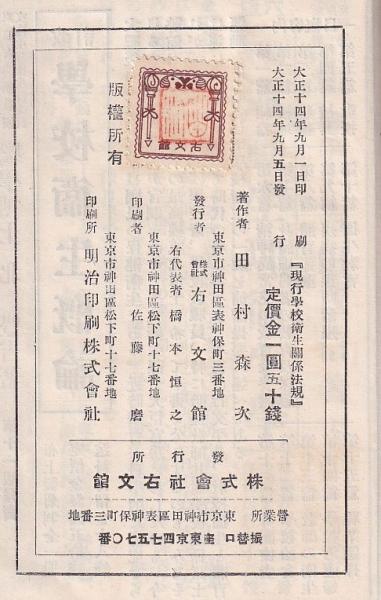 大正十四年九月一日印刷
大正十四年九月五日發行
『現行學校衛生關係法規』
定價金一圓五十錢
著作者 田村森次
東京市神田區表神保町三番地
發行者 株式會社 右文館
右代表者 橋本恒之
東京市神田區松下町十七番地
印刷者 佐藤磨
東京市神田區松下町十七番地
印刷所 明治印刷株式會社
版權所有
右文館
發行所
株式會社右文館
營業所 東京市神田區表神保町三番地
振替口座東京四七五七〇番